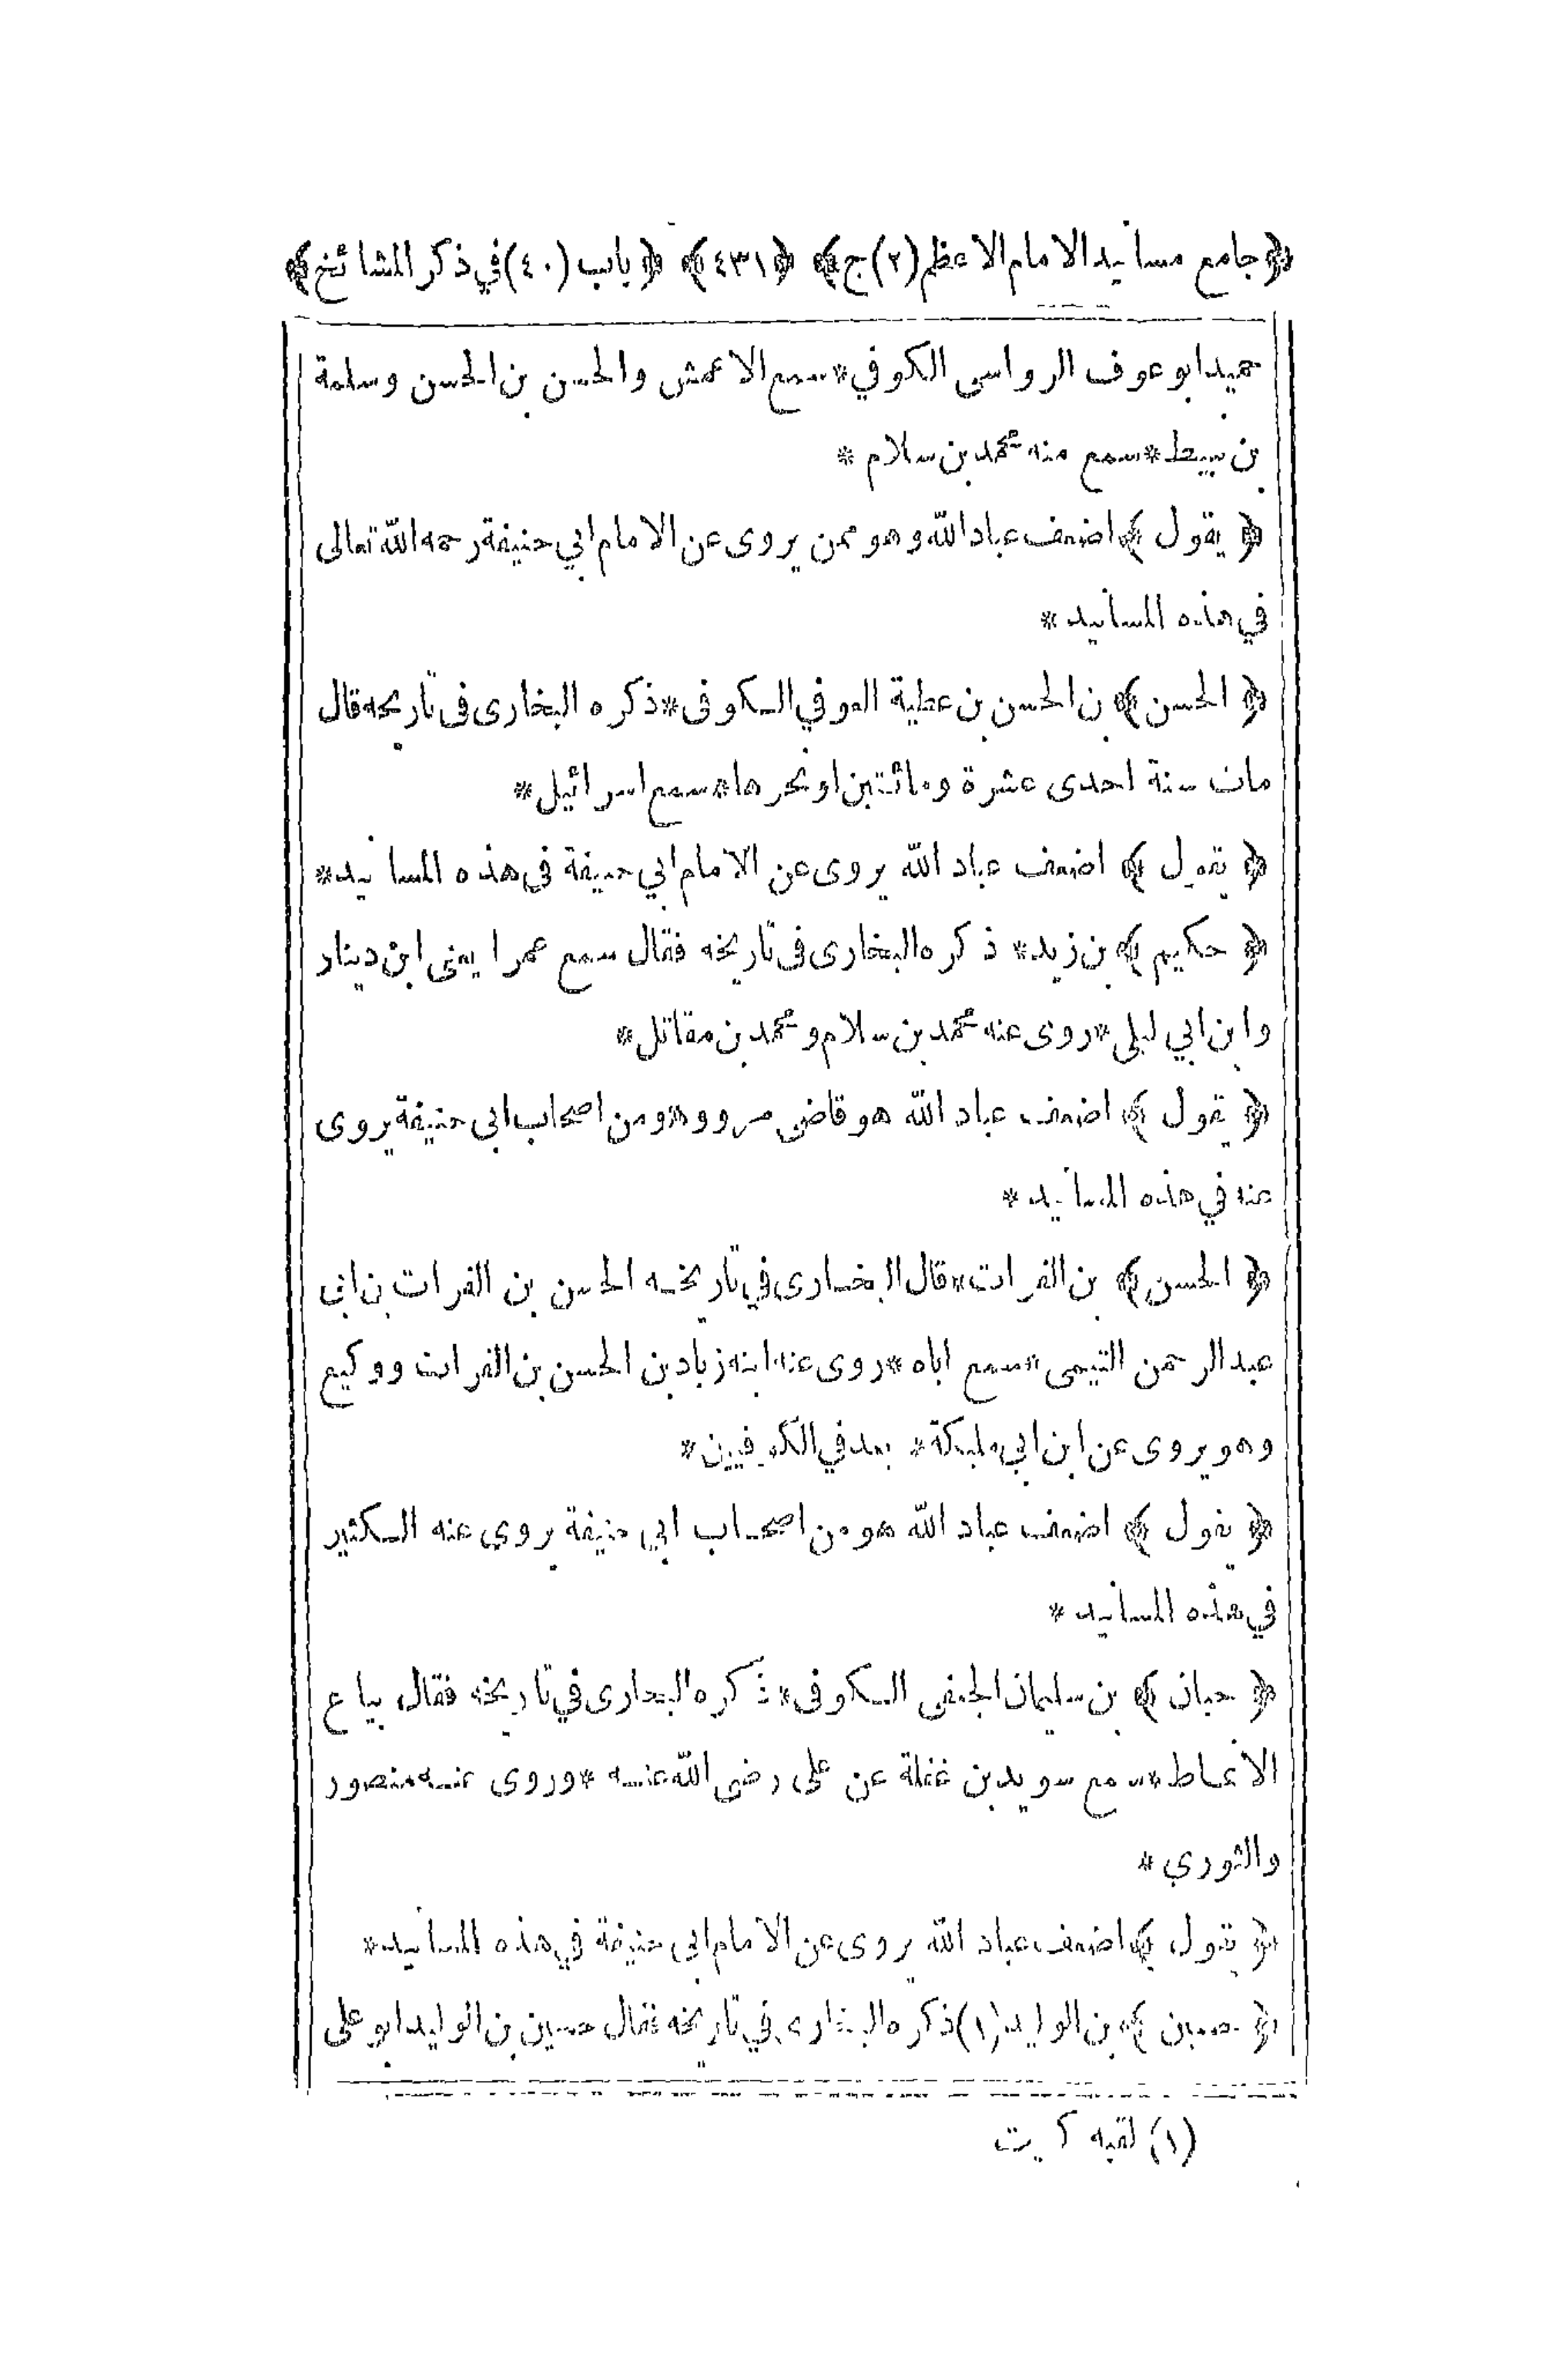 ﴿جامع مسانيد الامام الاعظم (٢) ج﴾ ﴿٤٣١﴾ ﴿باب (٤٠) في ذكر المشائخ﴾
حميد ابو عوف الرواسى الكوفي * سمع الاعمش والحسن بن الحسن وسلمة
بن نبيط * سمع منه محمد بن سلام *
﴿ يقول ﴾ اضعف عباد الله وهو ممن يروى عن الامام ابي حنيفة رحمه الله تعالى
في هذه المسانيد *
﴿ الحسن ﴾ بن الحسن بن عطية العوفي الكوفى * ذكره البخارى فى تاريخه قال
مات سنة احدى عشرة ومائتين او نحوها * سمع اسرائيل *
﴿ يقول ﴾ اضعف عباد الله يروى عن الامام ابي حنيفة فى هذه المسانيد *
﴿ حكيم ﴾ بن زيد * ذكره البخارى فى تاريخه فقال سمع عمرا يعنى ابن دينار
وابن ابي ليلى * روى عنه محمد بن سلام ومحمد بن مقاتل *
﴿ يقول ﴾ اضعف عباد الله هو قاضى مرو وهو من اصحاب ابى حنيفة يروى
عنه في هذه المسانيد *
﴿ الحسن ﴾ بن الفرات * قال البخارى في تاريخه الحسن بن الفرات بن ابى
عبد الرحمن التيمى * سمع اباه * روى عنه ابنه زياد بن الحسن بن الفرات ووكيع
وهو يروى عن ابن ابي مليكة * يعد في الكوفيين *
﴿ يقول ﴾ اضعف عباد الله هو من اصحاب ابي حنيفة يروى عنه الكثير
في هذه المسانيد *
﴿ حبان ﴾ بن سليمان الجعفى الكوفى * ذكره البخارى في تاريخه فقال بياع
الانماط * سمع سويد بن غفلة عن على رضى الله عنه * وروى عنه منصور
والثوري *
﴿ يقول ﴾ اضعف عباد الله يروى عن الامام ابى حنيفة في هذه المسانيد *
﴿ حسين ﴾ بن الوليد (١) ذكره البخارى في تاريخه فقال حسين بن الوليد ابو على
(١) لقبه